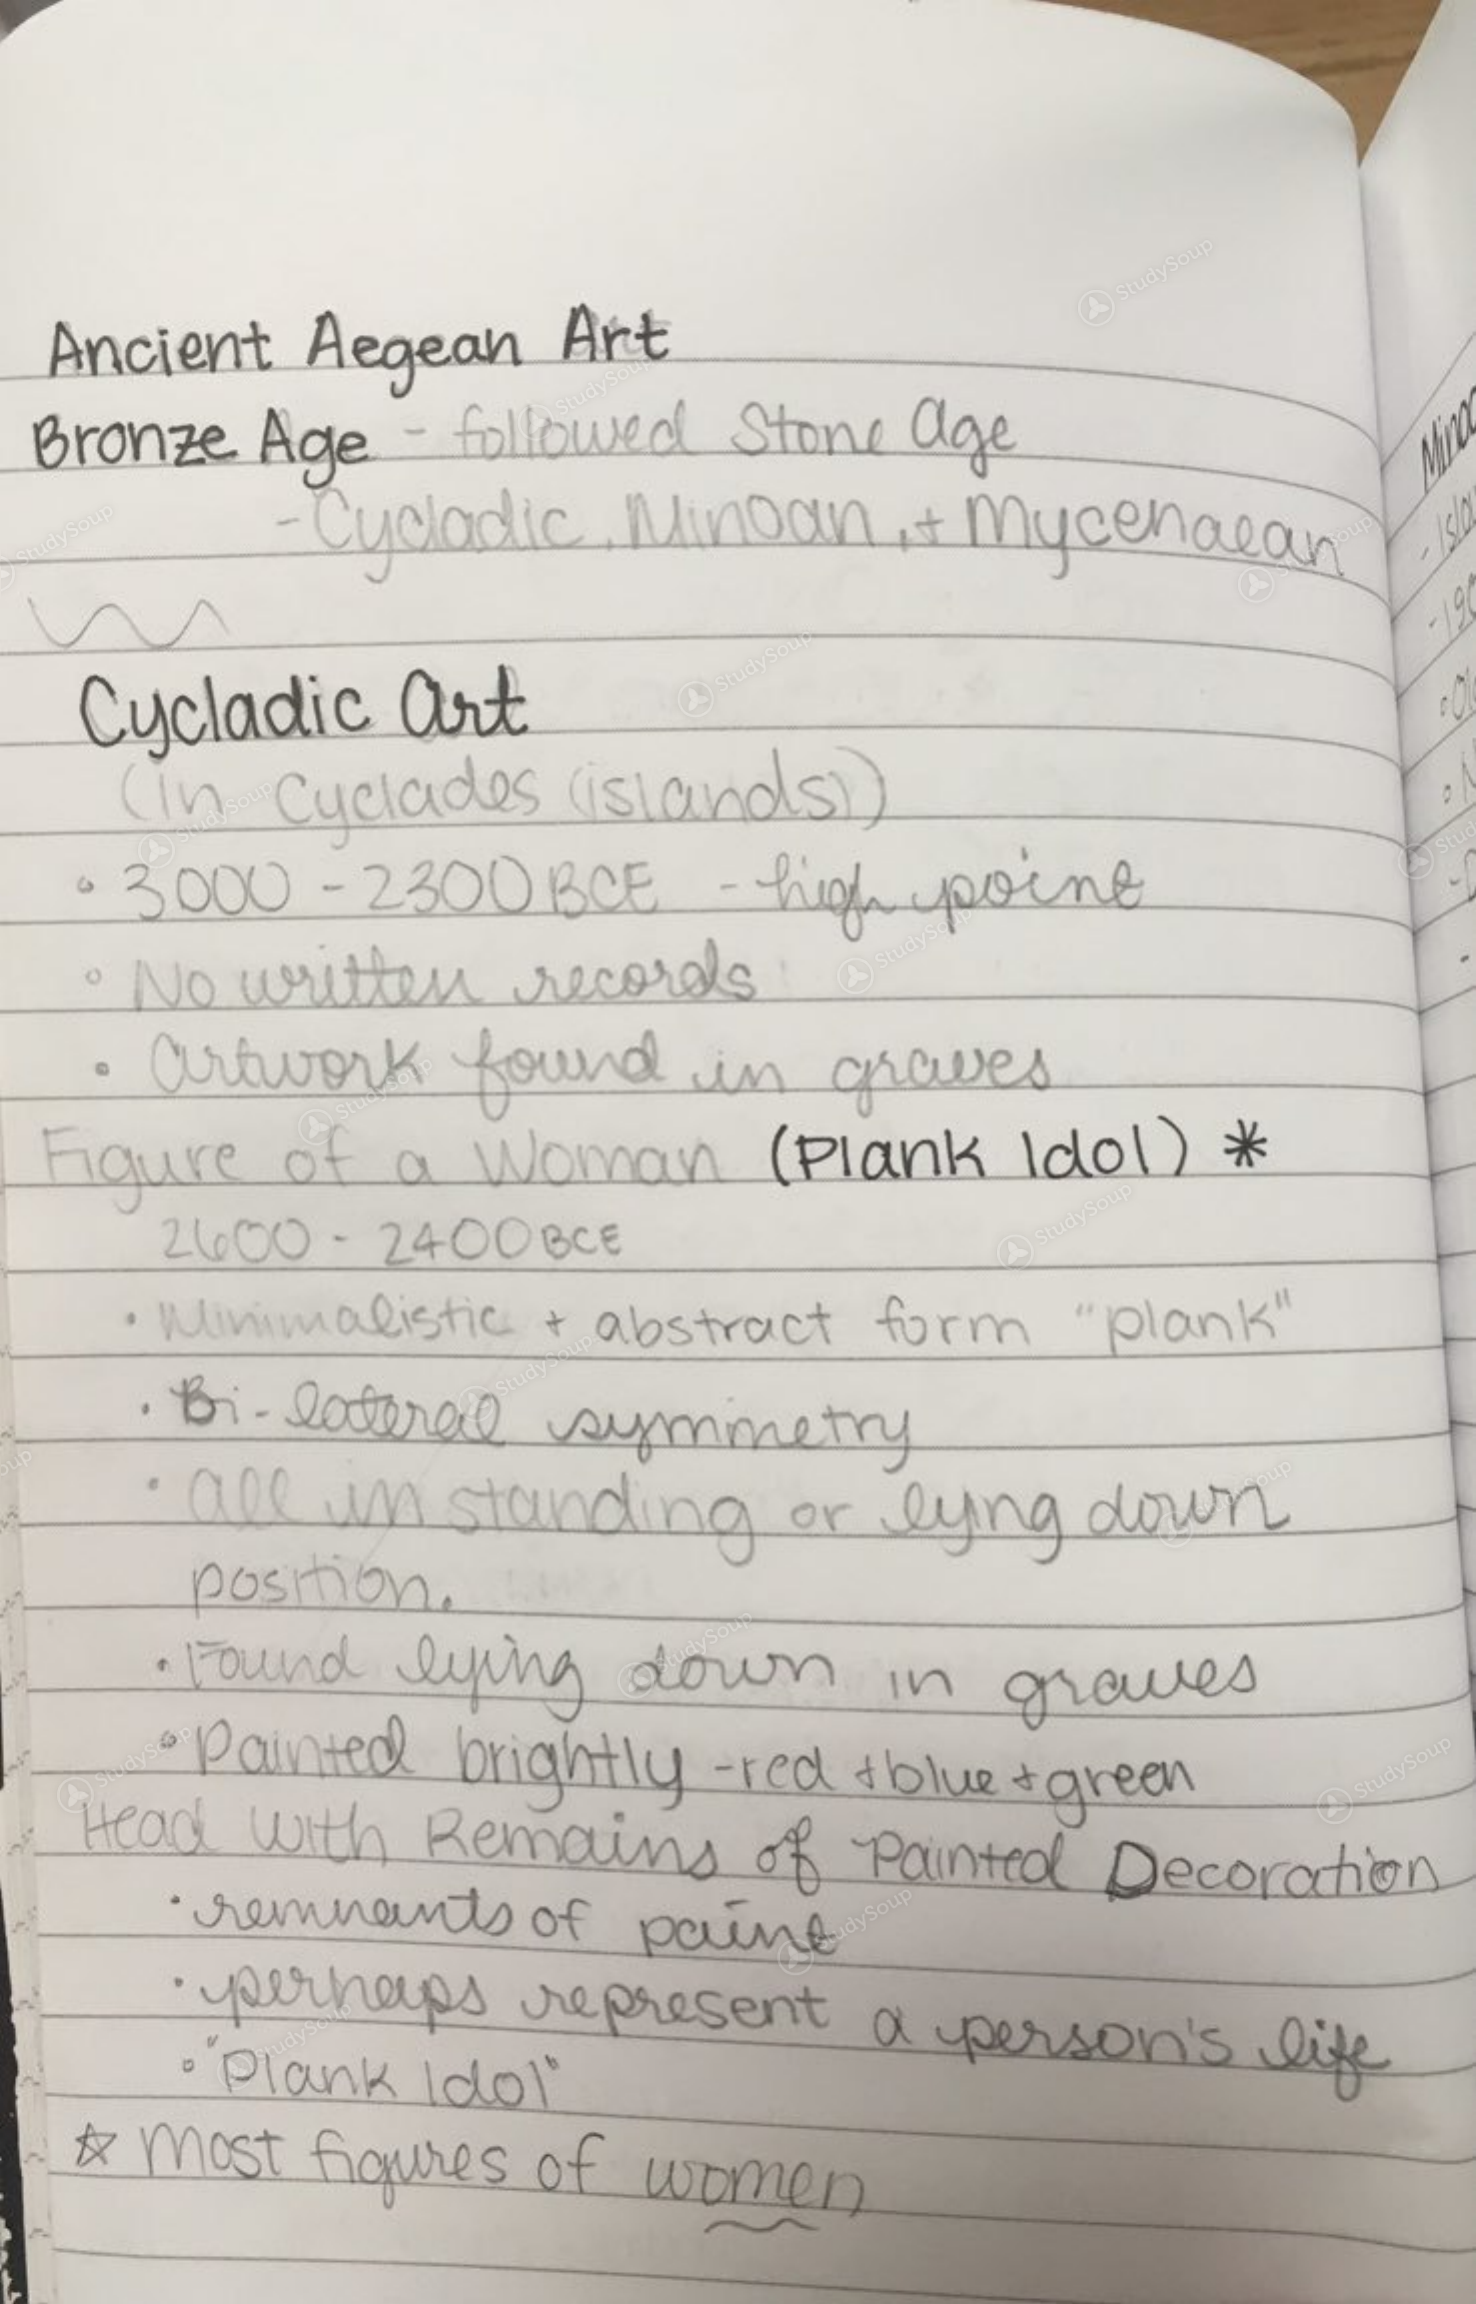 Ancient Aegean Art
Bronze Age - followed Stone Age
- Cycladic, Minoan, + Mycenaean
Cycladic Art
(in Cyclades (islands))
• 3000 - 2300 BCE - high point
• No written records
• Artwork found in graves
Figure of a Woman (Plank Idol) *
2600 - 2400 BCE
• Minimalistic + abstract form "plank"
• Bi-lateral symmetry
• all in standing or lying down
position.
• Found lying down in graves
• Painted brightly - red + blue + green
Head with Remains of Painted Decoration
• remnants of paint
• perhaps represent a person's life
• "Plank Idol"
☆ Most figures of women
StudySoup